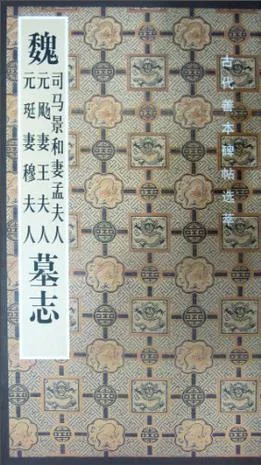 魏
司马景和妻孟夫人
元飏妻王夫人
元珽妻穆夫人
墓志
古代善本碑帖选萃